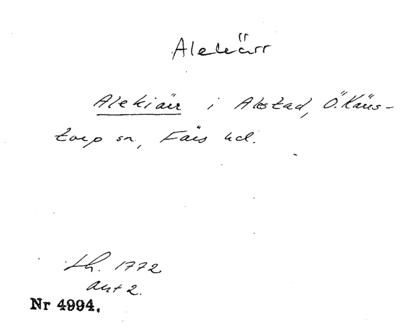 Alekärr
Alekiärr i Alestad, Ö. Kärs-
torp sn, Färs hd.
Lh. 1772
akt 2.
Nr 4994.